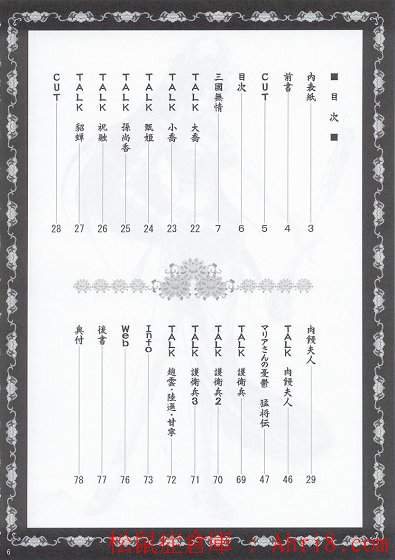 ■ 目次 ■
内表紙 3
前書 4
CUT 5
目次 6
三國無情 7
TALK 大喬 22
TALK 小喬 23
TALK 甄姫 24
TALK 孫尚香 25
TALK 祝融 26
TALK 貂蝉 27
CUT 28
肉饅夫人 29
TALK 肉饅夫人 46
マリアさんの憂鬱 猛将伝 47
TALK 護衛兵 69
TALK 護衛兵2 70
TALK 護衛兵3 71
TALK 趙雲・陸遜・甘寧 72
Info 73
Web 76
後書 77
奥付 78
6
松鼠症倉庫 : Ahri8.com